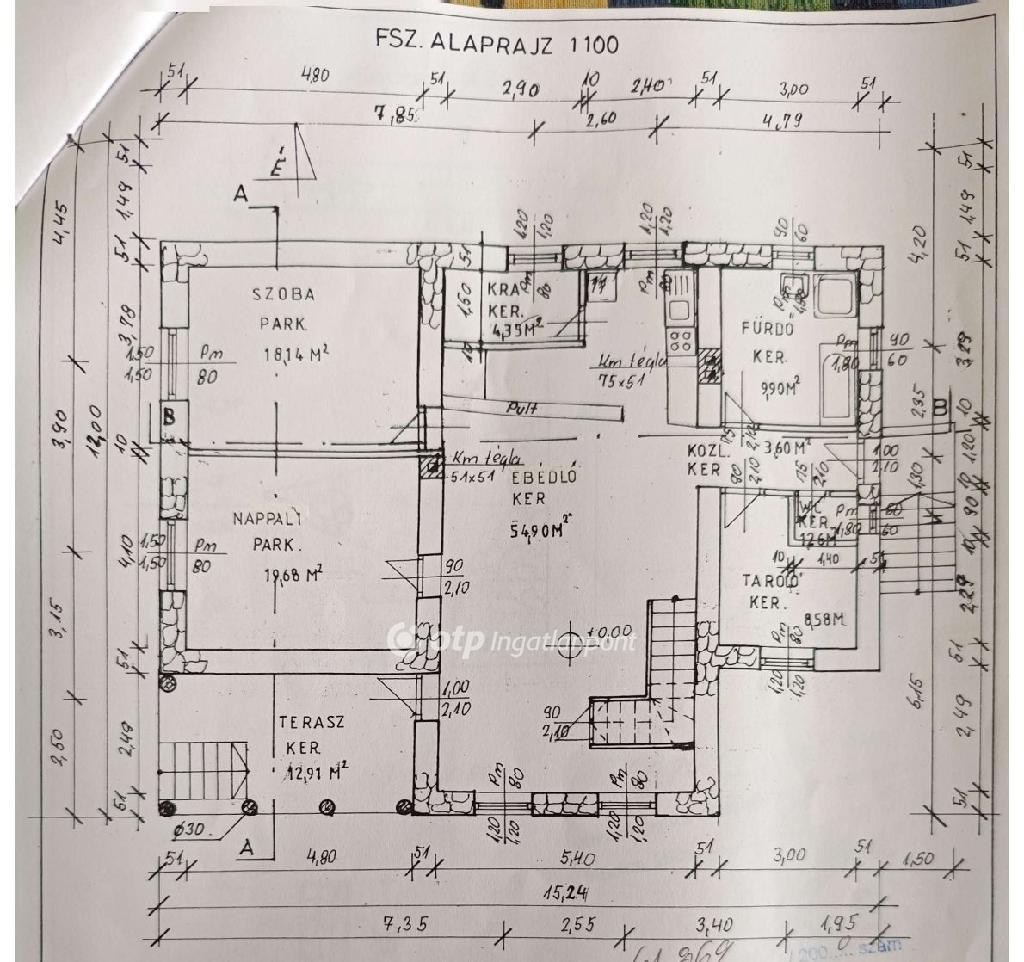 FSZ. ALAPRAJZ 1 100
51 4,80 51 2,90 10 2,40 51 3,00 51
7,85 2,60 4,79
É
A
4,45 3,90 3,15 2,60
12,00
51 1,49 51 3,78 10 4,10 51 2,48 51
4,20 2,35 1,30 6,15
51 1,49 51 3,29 10 1,20 10 90 10 2,29 51 2,49 51
1,20 1,20
1,20 1,20
90 60
SZOBA
PARK
18,14 M²
KRA
KER.
4,35 M²
Pm 80
51 1,60 10
17
Pm 80
FÜRDŐ
KER.
9,90 M²
Pm
1,80
90
60
Pm
1,80
1,50
1,50
Pm
80
B
Km tégla
75x51
Pult
Km tégla
51x51
EBÉDLŐ
KER
54,90 M²
KÖZL.
KER
3,60 M²
75 2,10
90 2,10
75 2,10
1,00
2,10
B
NAPPALI
PARK.
19,68 M²
1,50
1,50
Pm
80
90
2,10
WC
KER.
1,26 M²
Pm
1,80
60
60
10 1,40 51
TÁROLÓ
KER.
8,58 M
Pm 80
1,20 1,20
otp Ingatlanpont
±0.00
1,00
2,10
90
2,10
TERASZ
KER.
12,91 M²
Ø30
A
Pm 80
Pm 80
1,20 1,20
1,20 1,20
51 4,80 51 5,40 51 3,00 51 1,50
15,24
7,35 2,55 3,40 1,95
szám